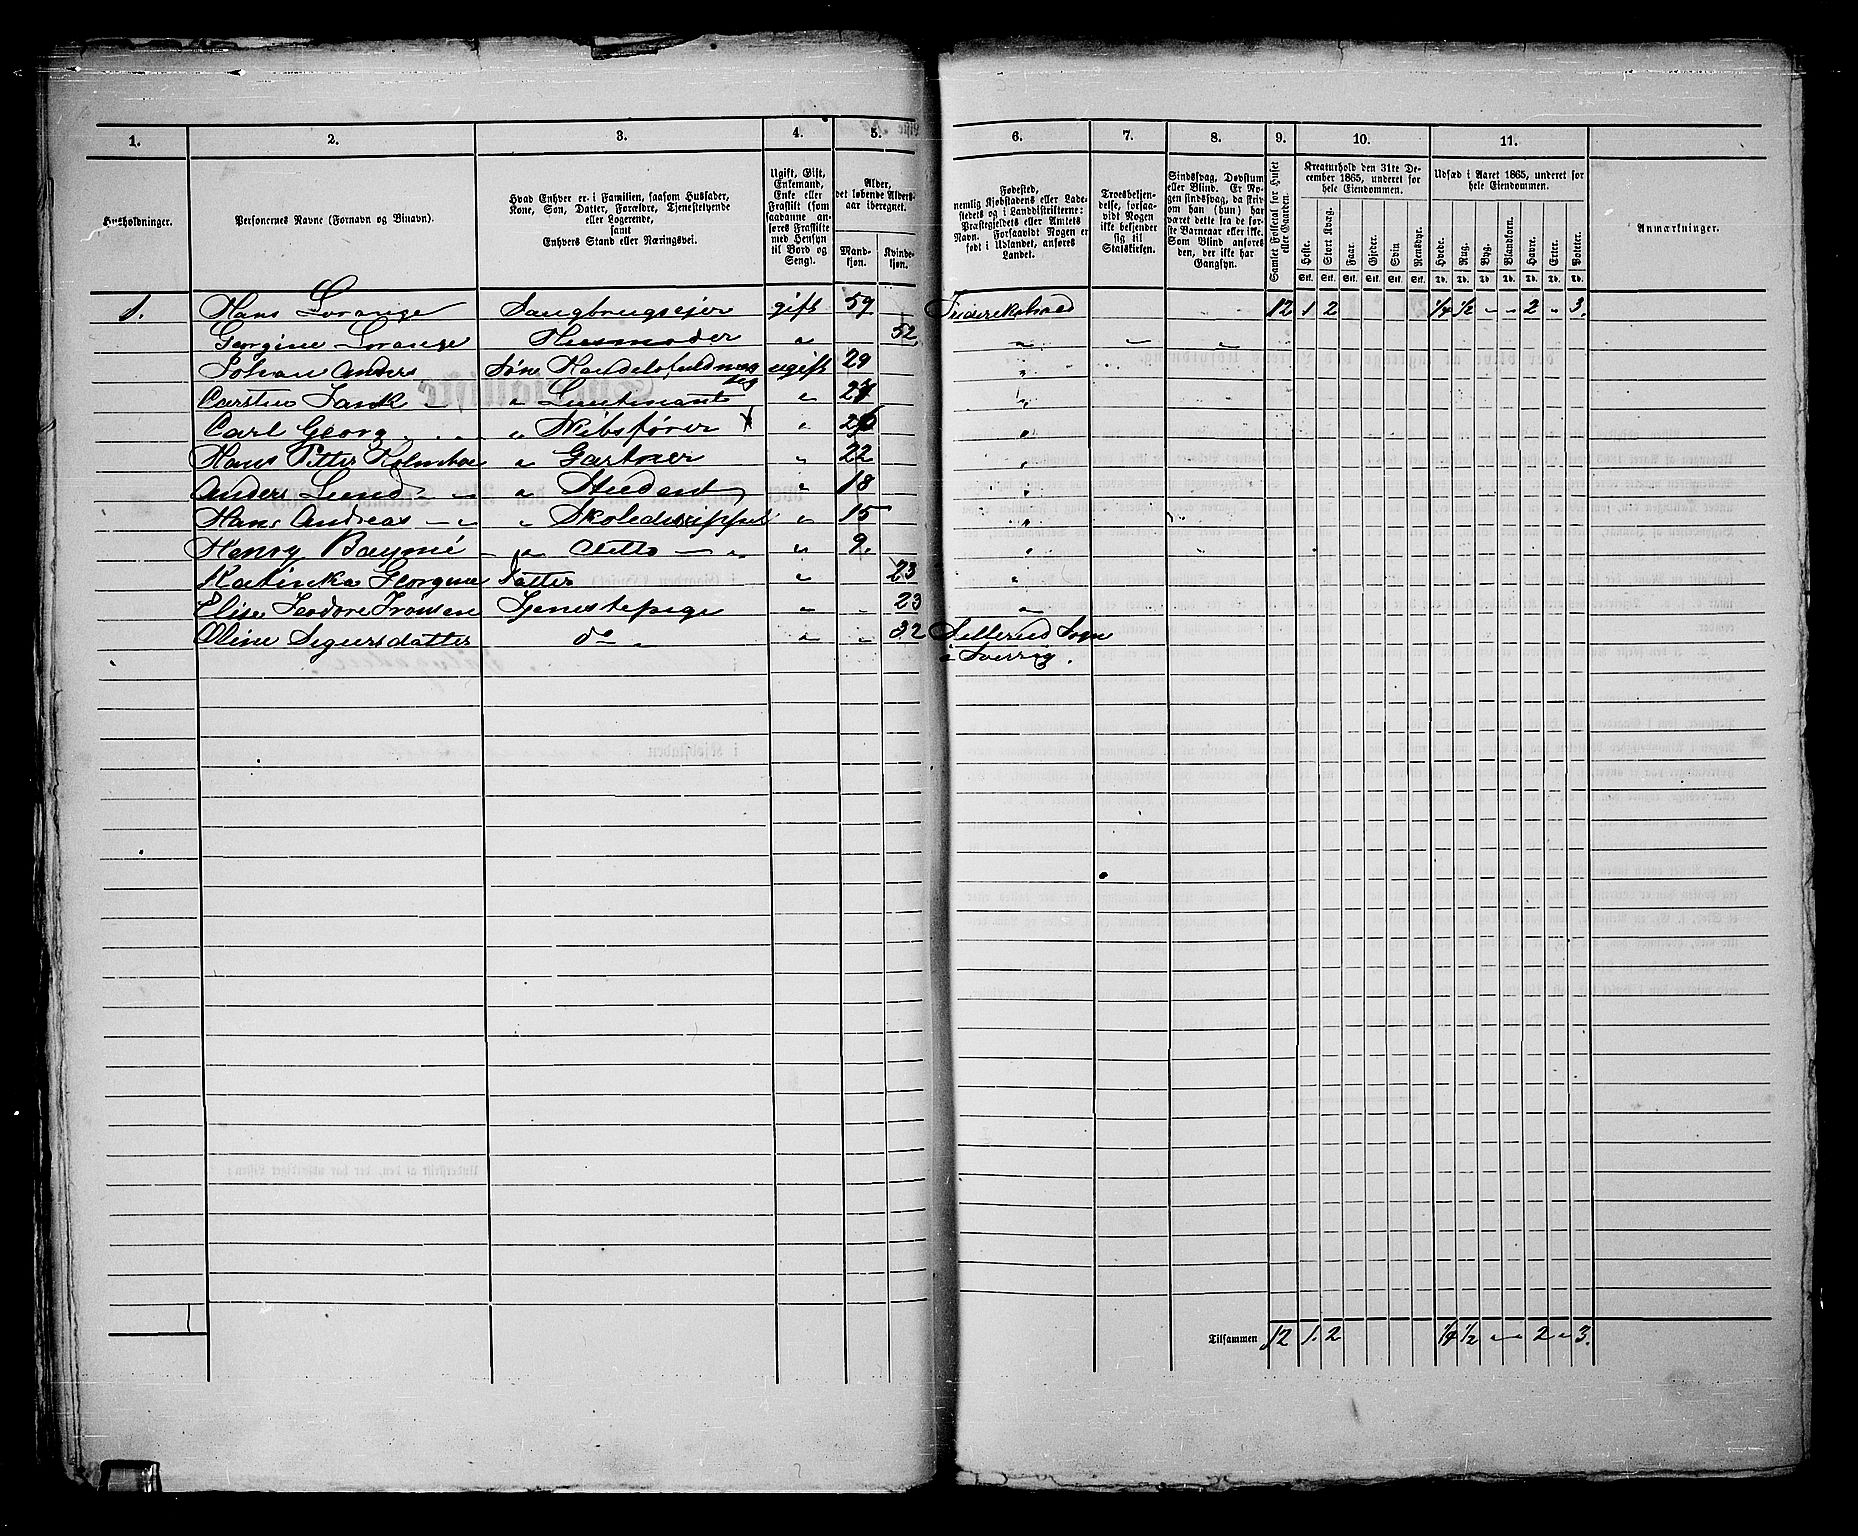 1. 2. 3. 4. 5. 6. 7. 8. 9. 10. 11.
Husholdninger.
Personernes Navne (Fornavn og Binavn).
Hvad Enhver er i Familien, saasom Husfader,
Kone, Søn, Datter, Forældre, Tjenestetyende
eller Logerende,
samt
Enhvers Stand eller Næringsvei.
Ugift, Gift,
Enkemand,
Enke eller
Fraskilt (som
saadanne an-
føres Fraskilte
med Hensyn
til Bord og
Seng).
Alder,
det løbende Alders-
aar iberegnet.
Mand-
kjøn.
Kvinde-
kjøn.
Fødested,
nemlig Kjøbstadens eller Lade-
stedets og i Landdistrikterne:
Præstegjeldets eller Amtets
Navn. Forsaavidt Nogen er
født i Udlandet, anføres
Landet.
Troesbekjen-
delse, forsaa-
vidt Nogen
ikke bekjender
sig til
Statskirken.
Sindssvag, Døvstum
eller Blind. Er No-
gen sindssvag, da skriv
om han (hun) har
været dette fra de før-
ste Barneaar eller ikke.
Som Blind anføres
den, der ikke har
Gangsyn.
Samlet Folketal for Huset
eller Gaarden.
Kreaturhold den 31te De-
cember 1865, underet for
hele Eiendommen.
Heste. Stort Kvæg. Faar. Gjeder. Svin Rensdyr.
Stk. Stk. Stk. Stk. Stk. Stk.
Udsæd i Aaret 1865, underet for
hele Eiendommen.
Hvede. Rug. Byg. Blandkorn. Havre. Erter. Poteter.
Td. Td. Td. Td. Td. Td. Td.
Anmærkninger.
1. Hans Lorange Saugbrugseier gift 59 Frederikshald 12 1 2 1/4 1/2 " " 2 " 3.
Georgine Lorange Huusmoder " 52 " " "
Johan Anders Søn Handelsfuldmæg ugift 29 "
tig
Carsten Tank " " Lieutenant " 27 "
Carl Georg " " Skibsfører " 26 "
Hans Petter Kolmboe " Gartner " 22 "
Anders Lund " " Student " 18 "
Hans Andreas " " Skolediscippel " 15 "
Henry " ditto " " 9. "
Katinka Georgine Datter " 23 "
Elise Teodore Tjenestepige " " 23 "
Oline Sigursdatter do " " " 32 Sillerud Sogn
i Sverrig.
Tilsammen 12 1. 2 1/4 1/2 " " 2 " 3.